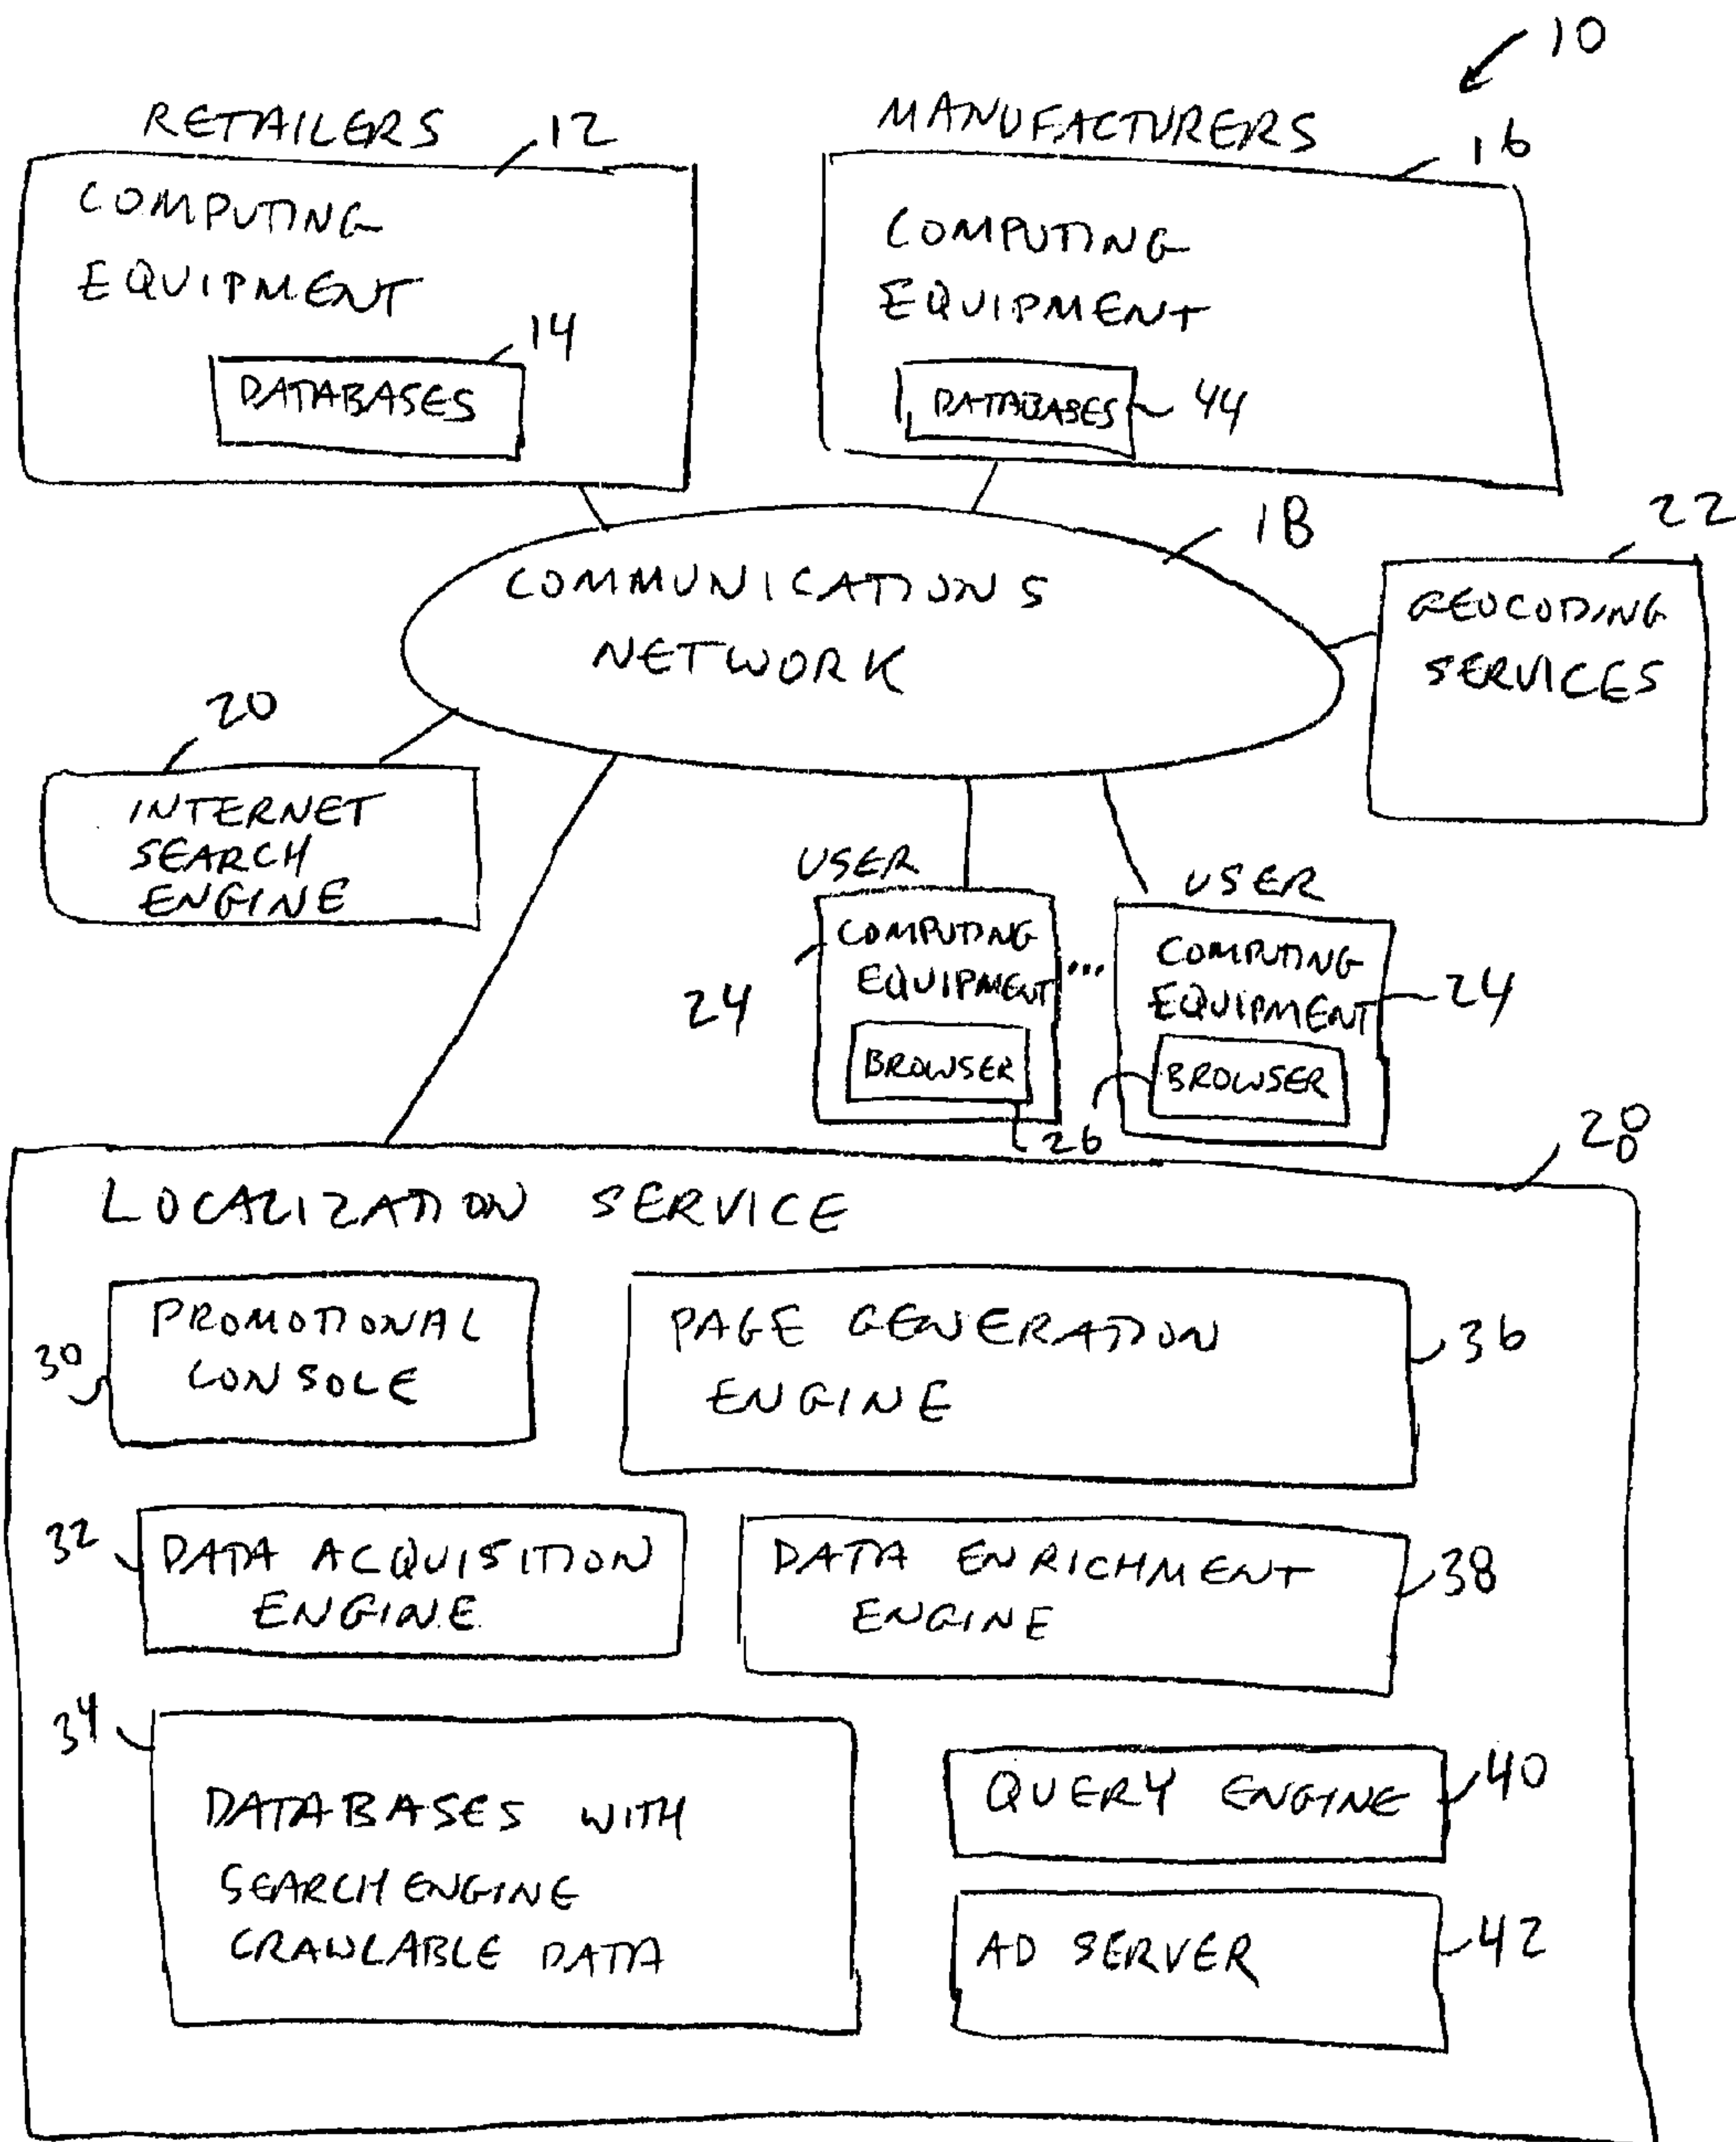 10
RETAILERS
12
COMPUTING
EQUIPMENT
14
DATABASES
MANUFACTURERS
16
COMPUTING
EQUIPMENT
DATABASES
44
18
COMMUNICATIONS
NETWORK
22
GEOCODING
SERVICES
20
INTERNET
SEARCH
ENGINE
USER
COMPUTING
EQUIPMENT
24
BROWSER
26
...
USER
COMPUTING
EQUIPMENT
24
BROWSER
28
LOCALIZATION SERVICE
30
PROMOTIONAL
CONSOLE
PAGE GENERATION
ENGINE
36
32
DATA ACQUISITION
ENGINE
DATA ENRICHMENT
ENGINE
38
34
DATABASES WITH
SEARCH ENGINE
CRAWLABLE DATA
QUERY ENGINE
40
AD SERVER
42